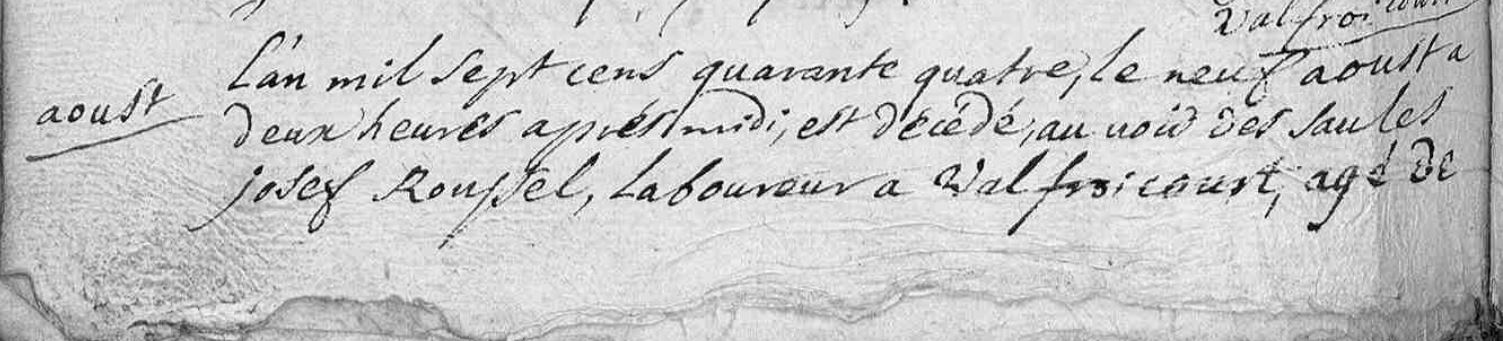 Valfroicourt
L'an mil sept cens quarante quatre, le neuf aoust a
aoust
deux heures aprés midi, est décédé, au des saules
josef Roussel, Laboureur a Valfroicourt, agé de